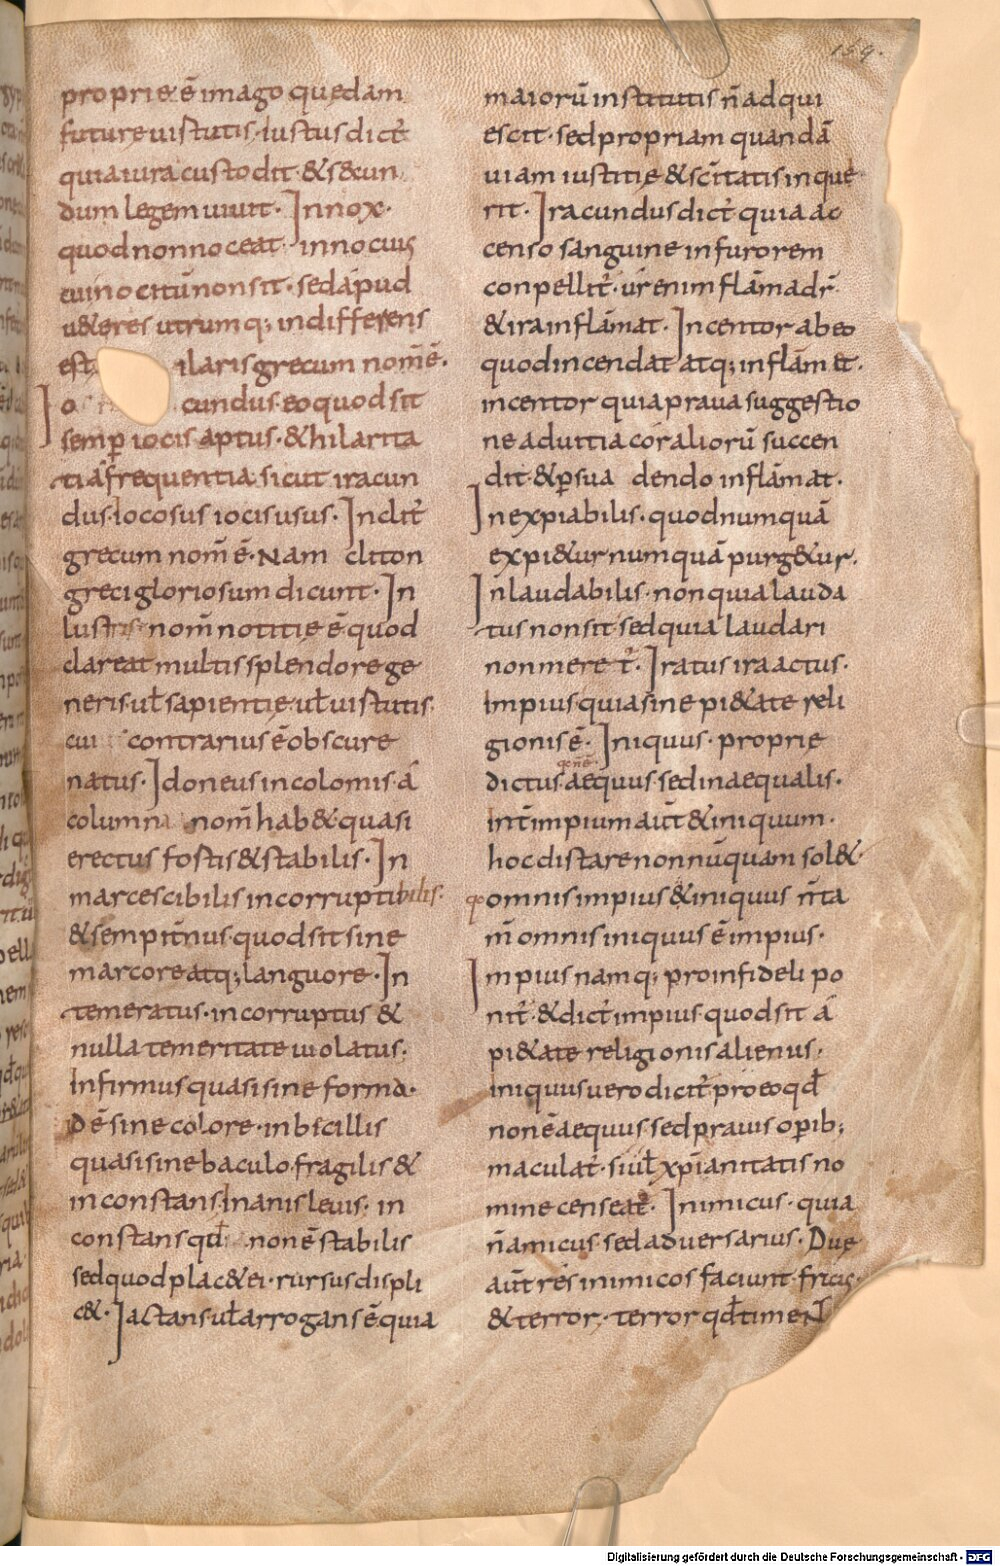 159.
propriæ ē imago quędam
futurę uirtutis. Iustus dicť
quia iura custodit. & s&cun
dum legem uiuit. Innox.
quod non noceat. innocuis
cui nocitū non sit. sed apud
u&eres utrumq; indifferens
est ilaris grecum nom̄ ē.
Io cundus. eo quod sit
semp iocis aptus. & hilarita
ti a frequentia. sicut iracun
dus. Iocosus iocis usus. Inclit̄
grecum nom̄ ē. Nam cliton
greci gloriosum dicunt. In
lustris nom̄ notitię ē quod
clareat multis splendore ge
neris. uł sapientię. uł uirtutis.
cui contrarius ē obscure
natus. Idoneus incolomis. ā
columna nom̄ hab& quasi
erectus fortis & stabilis. In
marcescibilis incorruptibilis.
& sempiť nus. quod sit sine
marcore atq; languore. In
temeratus. incorruptus &
nulla temeritate uiolatus.
Infirmus quasi sine forma.
Dē sine colore. inbecillis
quasi sine baculo. fragilis &
inconstans. Inanis leuis. in
constans qđ non ē stabilis
sed quod plac& ei. rursus displi
c&. Iactans. uł arrogans ē quia
maiorū institutis n̄ adqui
escit. sed propriam quandā
uiam iustitię & scītatis in quę
rit. Iracundus dicť quia ac
censo sanguine in furorem
conpelliť. ur enim flāma dr̄.
& ira inflāmat. Incentor ab eo
quod incendat atq; inflām &.
incentor quia praua suggestio
ne ad uitia cor aliorū succen
dit. & psua dendo inflāmat.
Inexpiabilis. quod numquā
expi&ur numquā purg&ur.
Inlaudabilis. non quia lauda
tus non sit sed quia laudari
non mere ť. Iratus ira actus.
Impius. quia sine pi&ate reli
gionis ē. Iniquus. proprie
q̄ n̄ ē.
dictus aequus sed inaequalis.
Inť impium aūt & iniquum.
hoc distare nonnūquam sol&.
qd omnis impius & iniquus n̄ ta
m̄ omnis iniquus ē impius.
Impius namq; pro infideli po
niť. & dicť impius. quod sit ā
pi&ate religionis alienus.
iniquus uero diciť pro eo qđ
non ē aequus. sed prauis opib;
maculať. siuł xp̄ianitatis no
mine censeat̄. Inimicus. quia
n̄ amicus. sed aduersarius. Duę
aūt res inimicos faciunt. fraus.
& terror. terror qđ timeNť
Digitalisierung gefördert durch die Deutsche Forschungsgemeinschaft - DFG